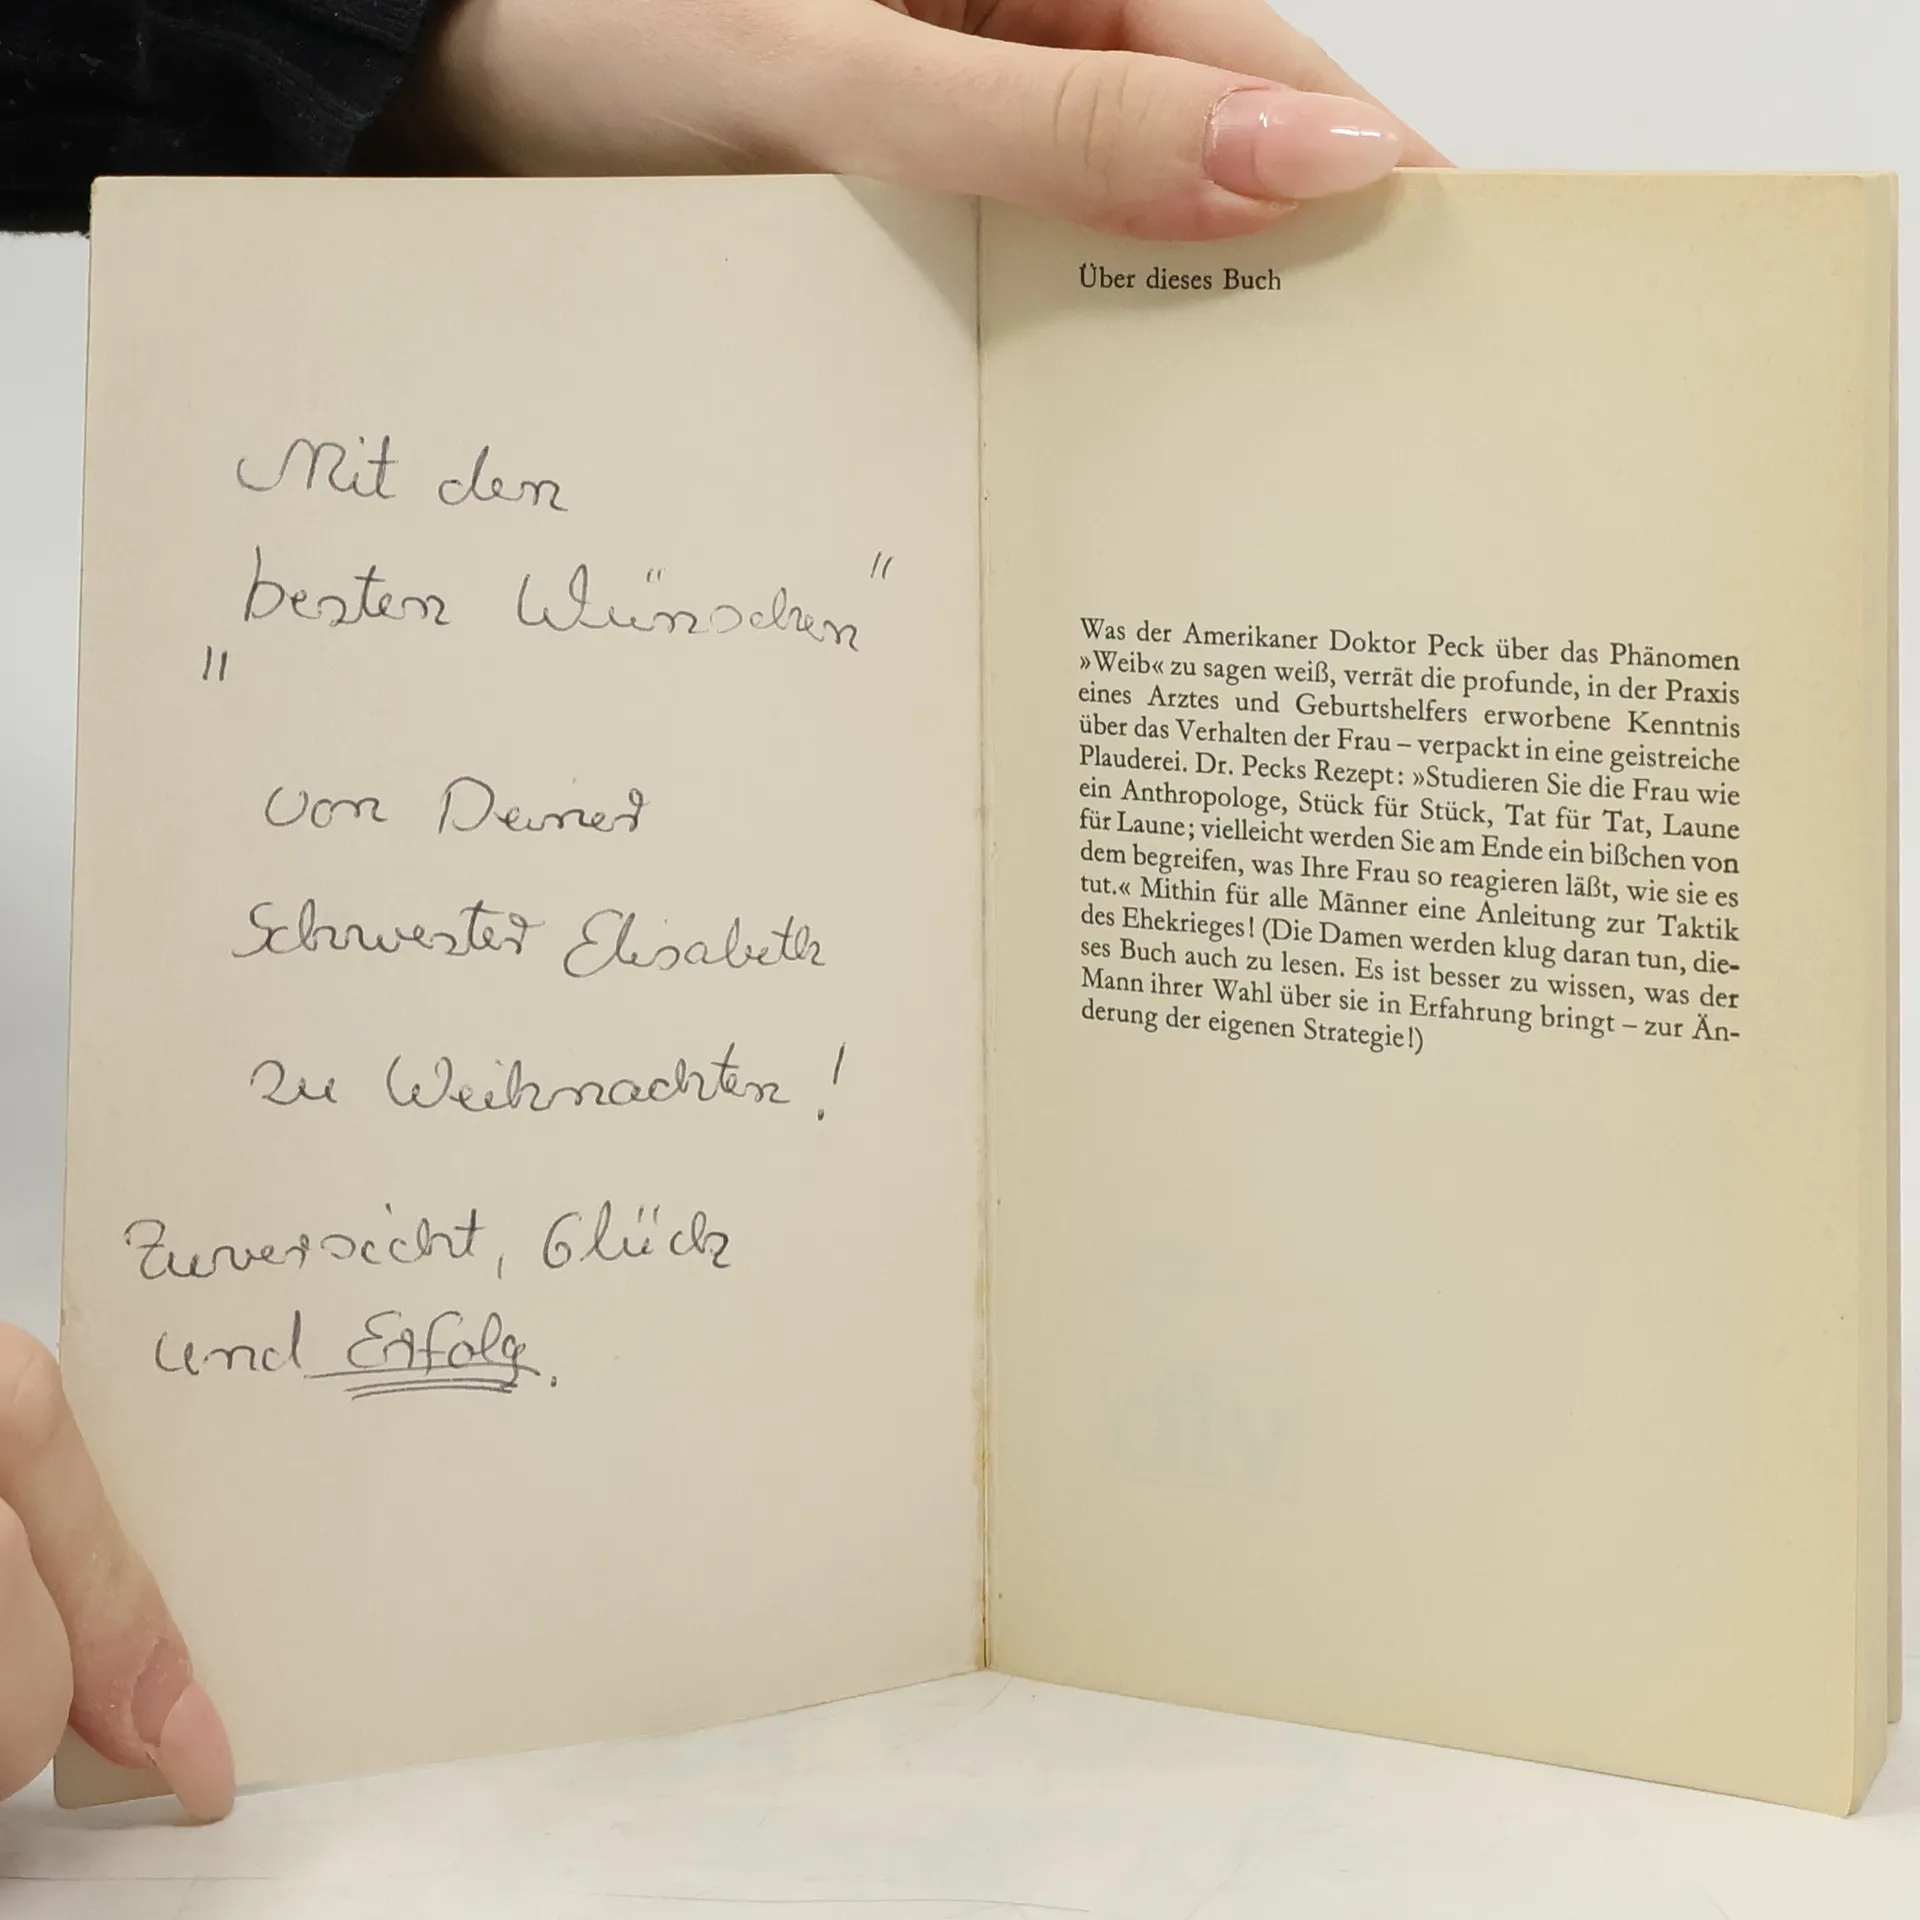 Mit den
besten Wünschen"
"
von Deiner
Schwester Elisabeth
zu Weihnachten!
Zuversicht, Glück
und Erfolg.
Über dieses Buch
Was der Amerikaner Doktor Peck über das Phänomen
»Weib« zu sagen weiß, verrät die profunde, in der Praxis
eines Arztes und Geburtshelfers erworbene Kenntnis
über das Verhalten der Frau – verpackt in eine geistreiche
Plauderei. Dr. Pecks Rezept: »Studieren Sie die Frau wie
ein Anthropologe, Stück für Stück, Tat für Tat, Laune
für Laune; vielleicht werden Sie am Ende ein bißchen von
dem begreifen, was Ihre Frau so reagieren läßt, wie sie es
tut.« Mithin für alle Männer eine Anleitung zur Taktik
des Ehekrieges! (Die Damen werden klug daran tun, die-
ses Buch auch zu lesen. Es ist besser zu wissen, was der
Mann ihrer Wahl über sie in Erfahrung bringt – zur Än-
derung der eigenen Strategie!)